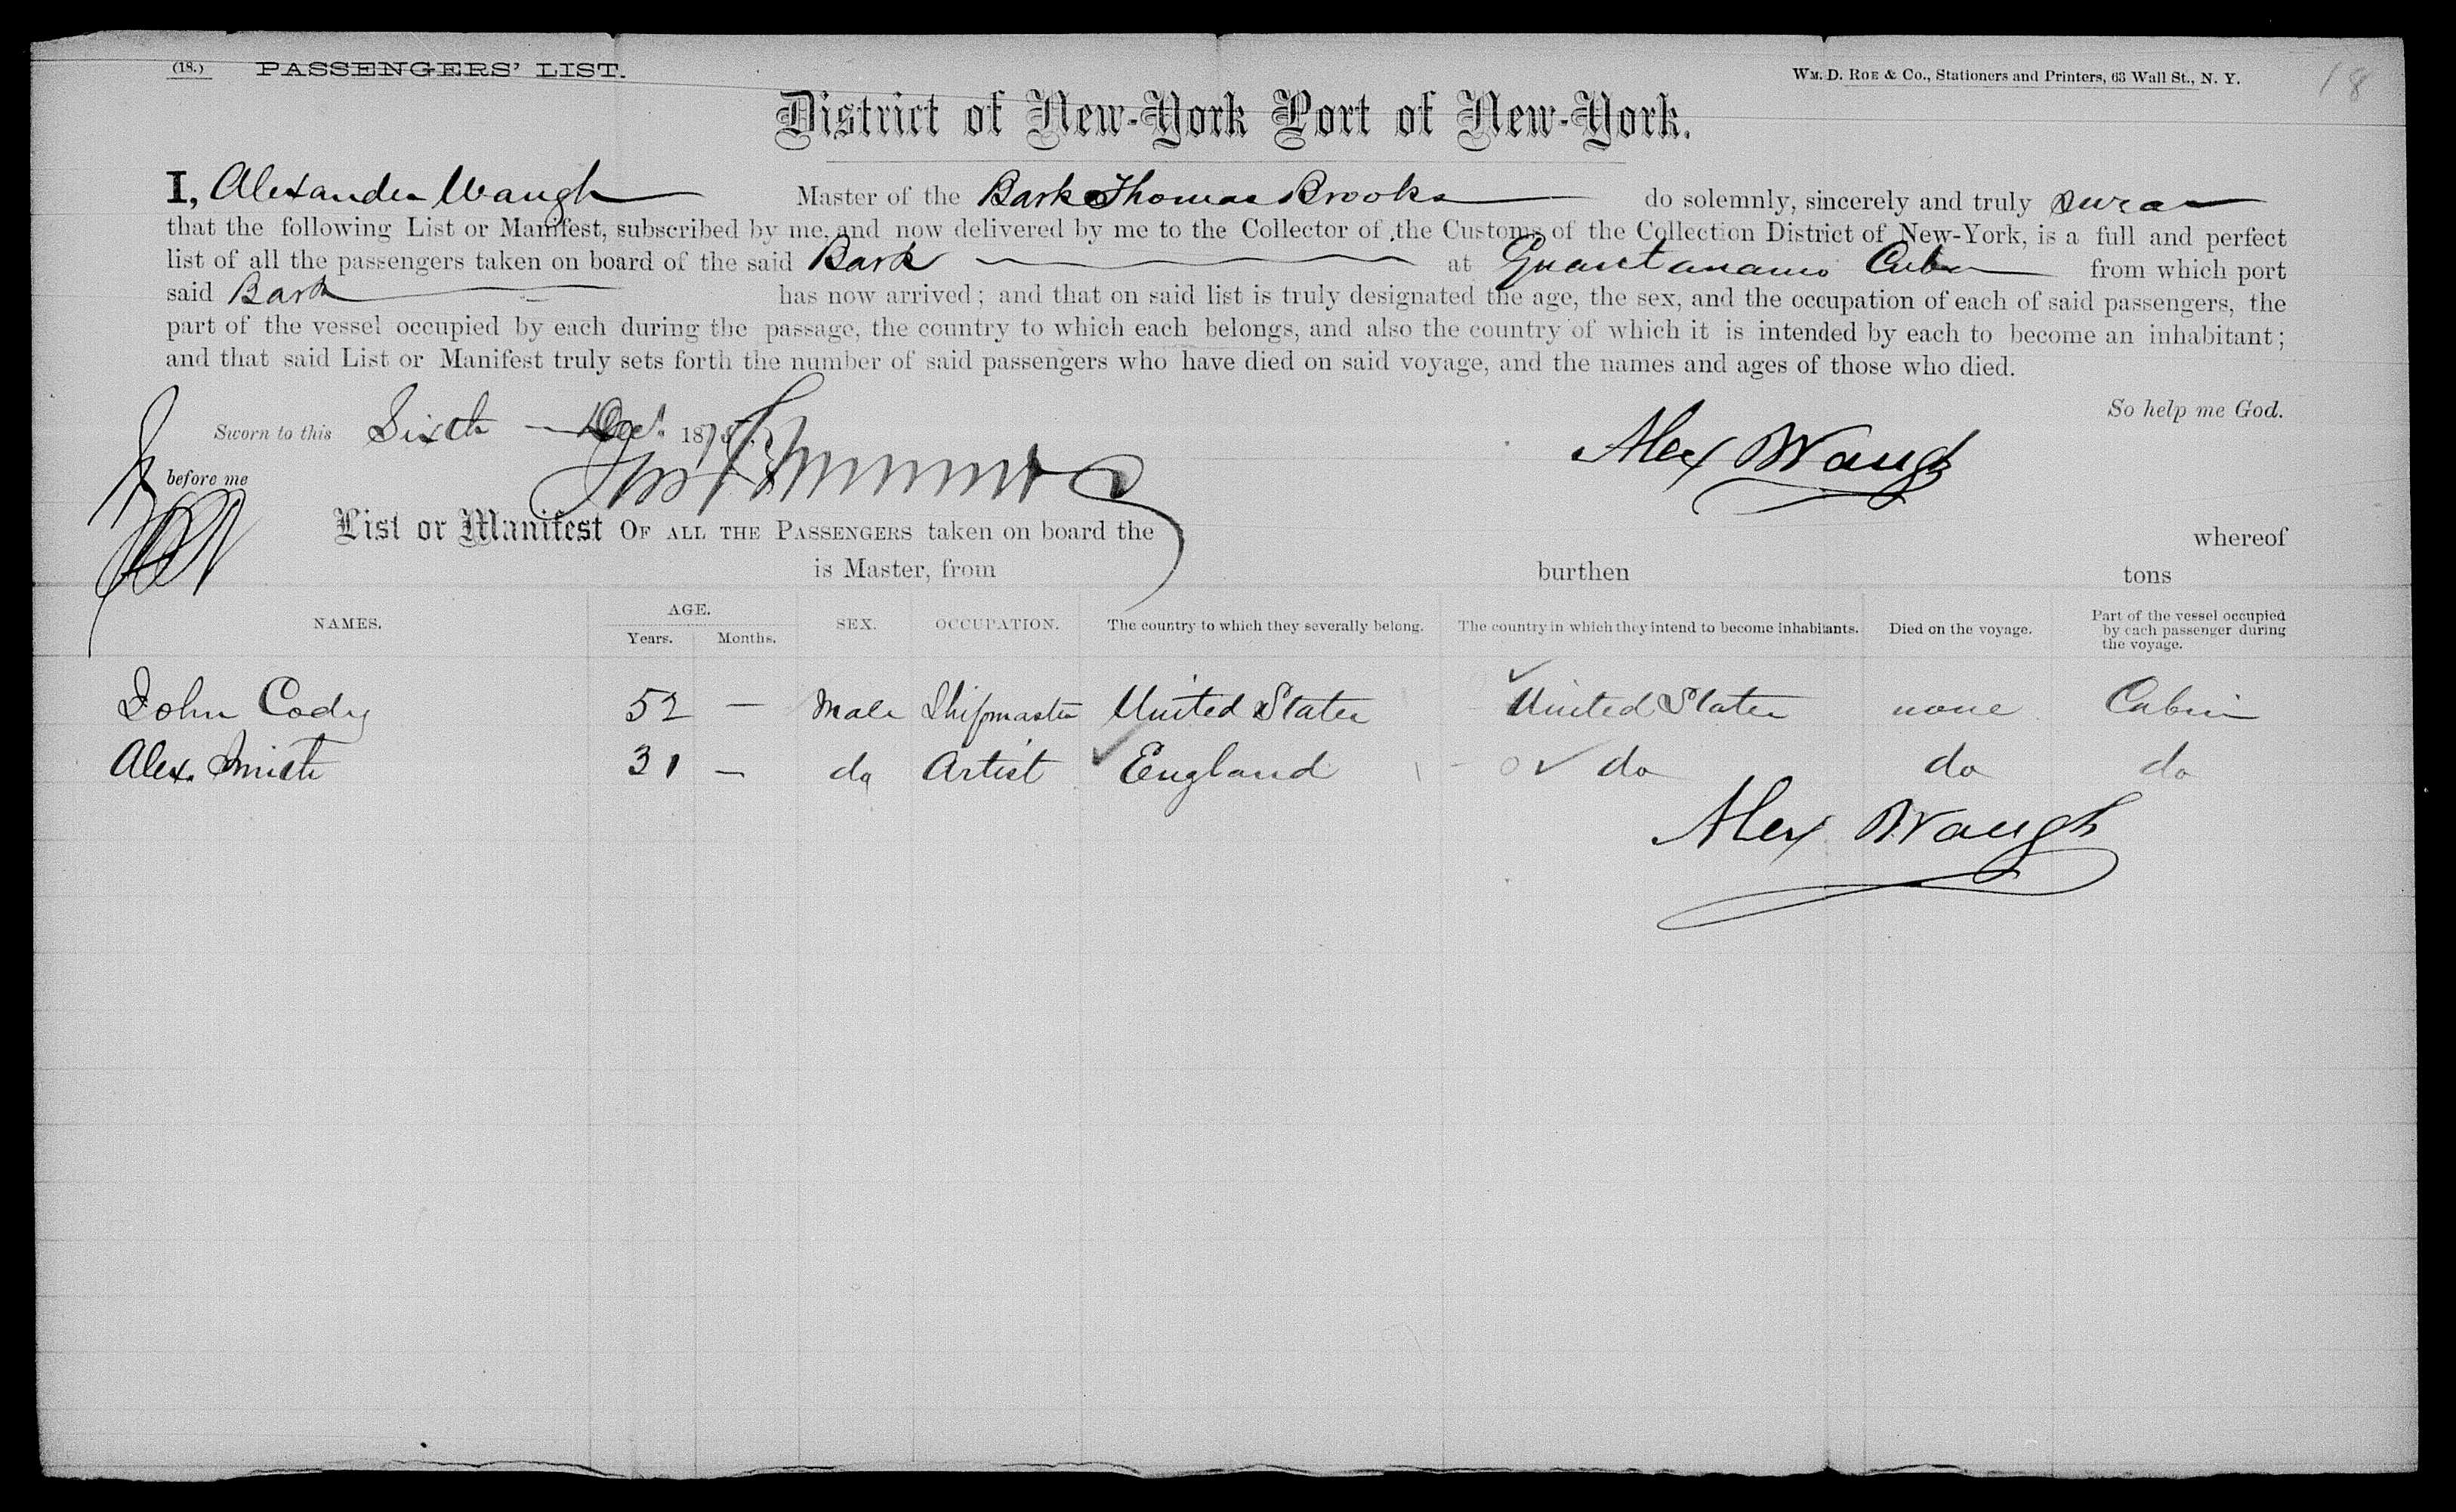 (18.) PASSENGERS' LIST. WM. D. ROE & Co., Stationers and Printers, 63 Wall St., N. Y. 18
District of New-York Port of New-York.
I, Alexander Waugh Master of the Bark Thomas Brooks do solemnly, sincerely and truly swear
that the following List or Manifest, subscribed by me, and now delivered by me to the Collector of the Customs of the Collection District of New-York, is a full and perfect
list of all the passengers taken on board of the said Bark at Guantanamo Cuba from which port
said Bark has now arrived; and that on said list is truly designated the age, the sex, and the occupation of each of said passengers, the
part of the vessel occupied by each during the passage, the country to which each belongs, and also the country of which it is intended by each to become an inhabitant;
and that said List or Manifest truly sets forth the number of said passengers who have died on said voyage, and the names and ages of those who died.
So help me God.
Sworn to this Sixth Dec. 187 Alex Waugh
before me
List or Manifest OF ALL THE PASSENGERS taken on board the whereof
is Master, from burthen tons
NAMES. AGE. Years. Months. SEX. OCCUPATION. The country to which they severally belong. The country in which they intend to become inhabitants. Died on the voyage. Part of the vessel occupied by each passenger during the voyage.
John Cody 52 — Male Shipmaster United States United States none Cabin
Alex. Smith 31 — do Artist England do do do
Alex Waugh